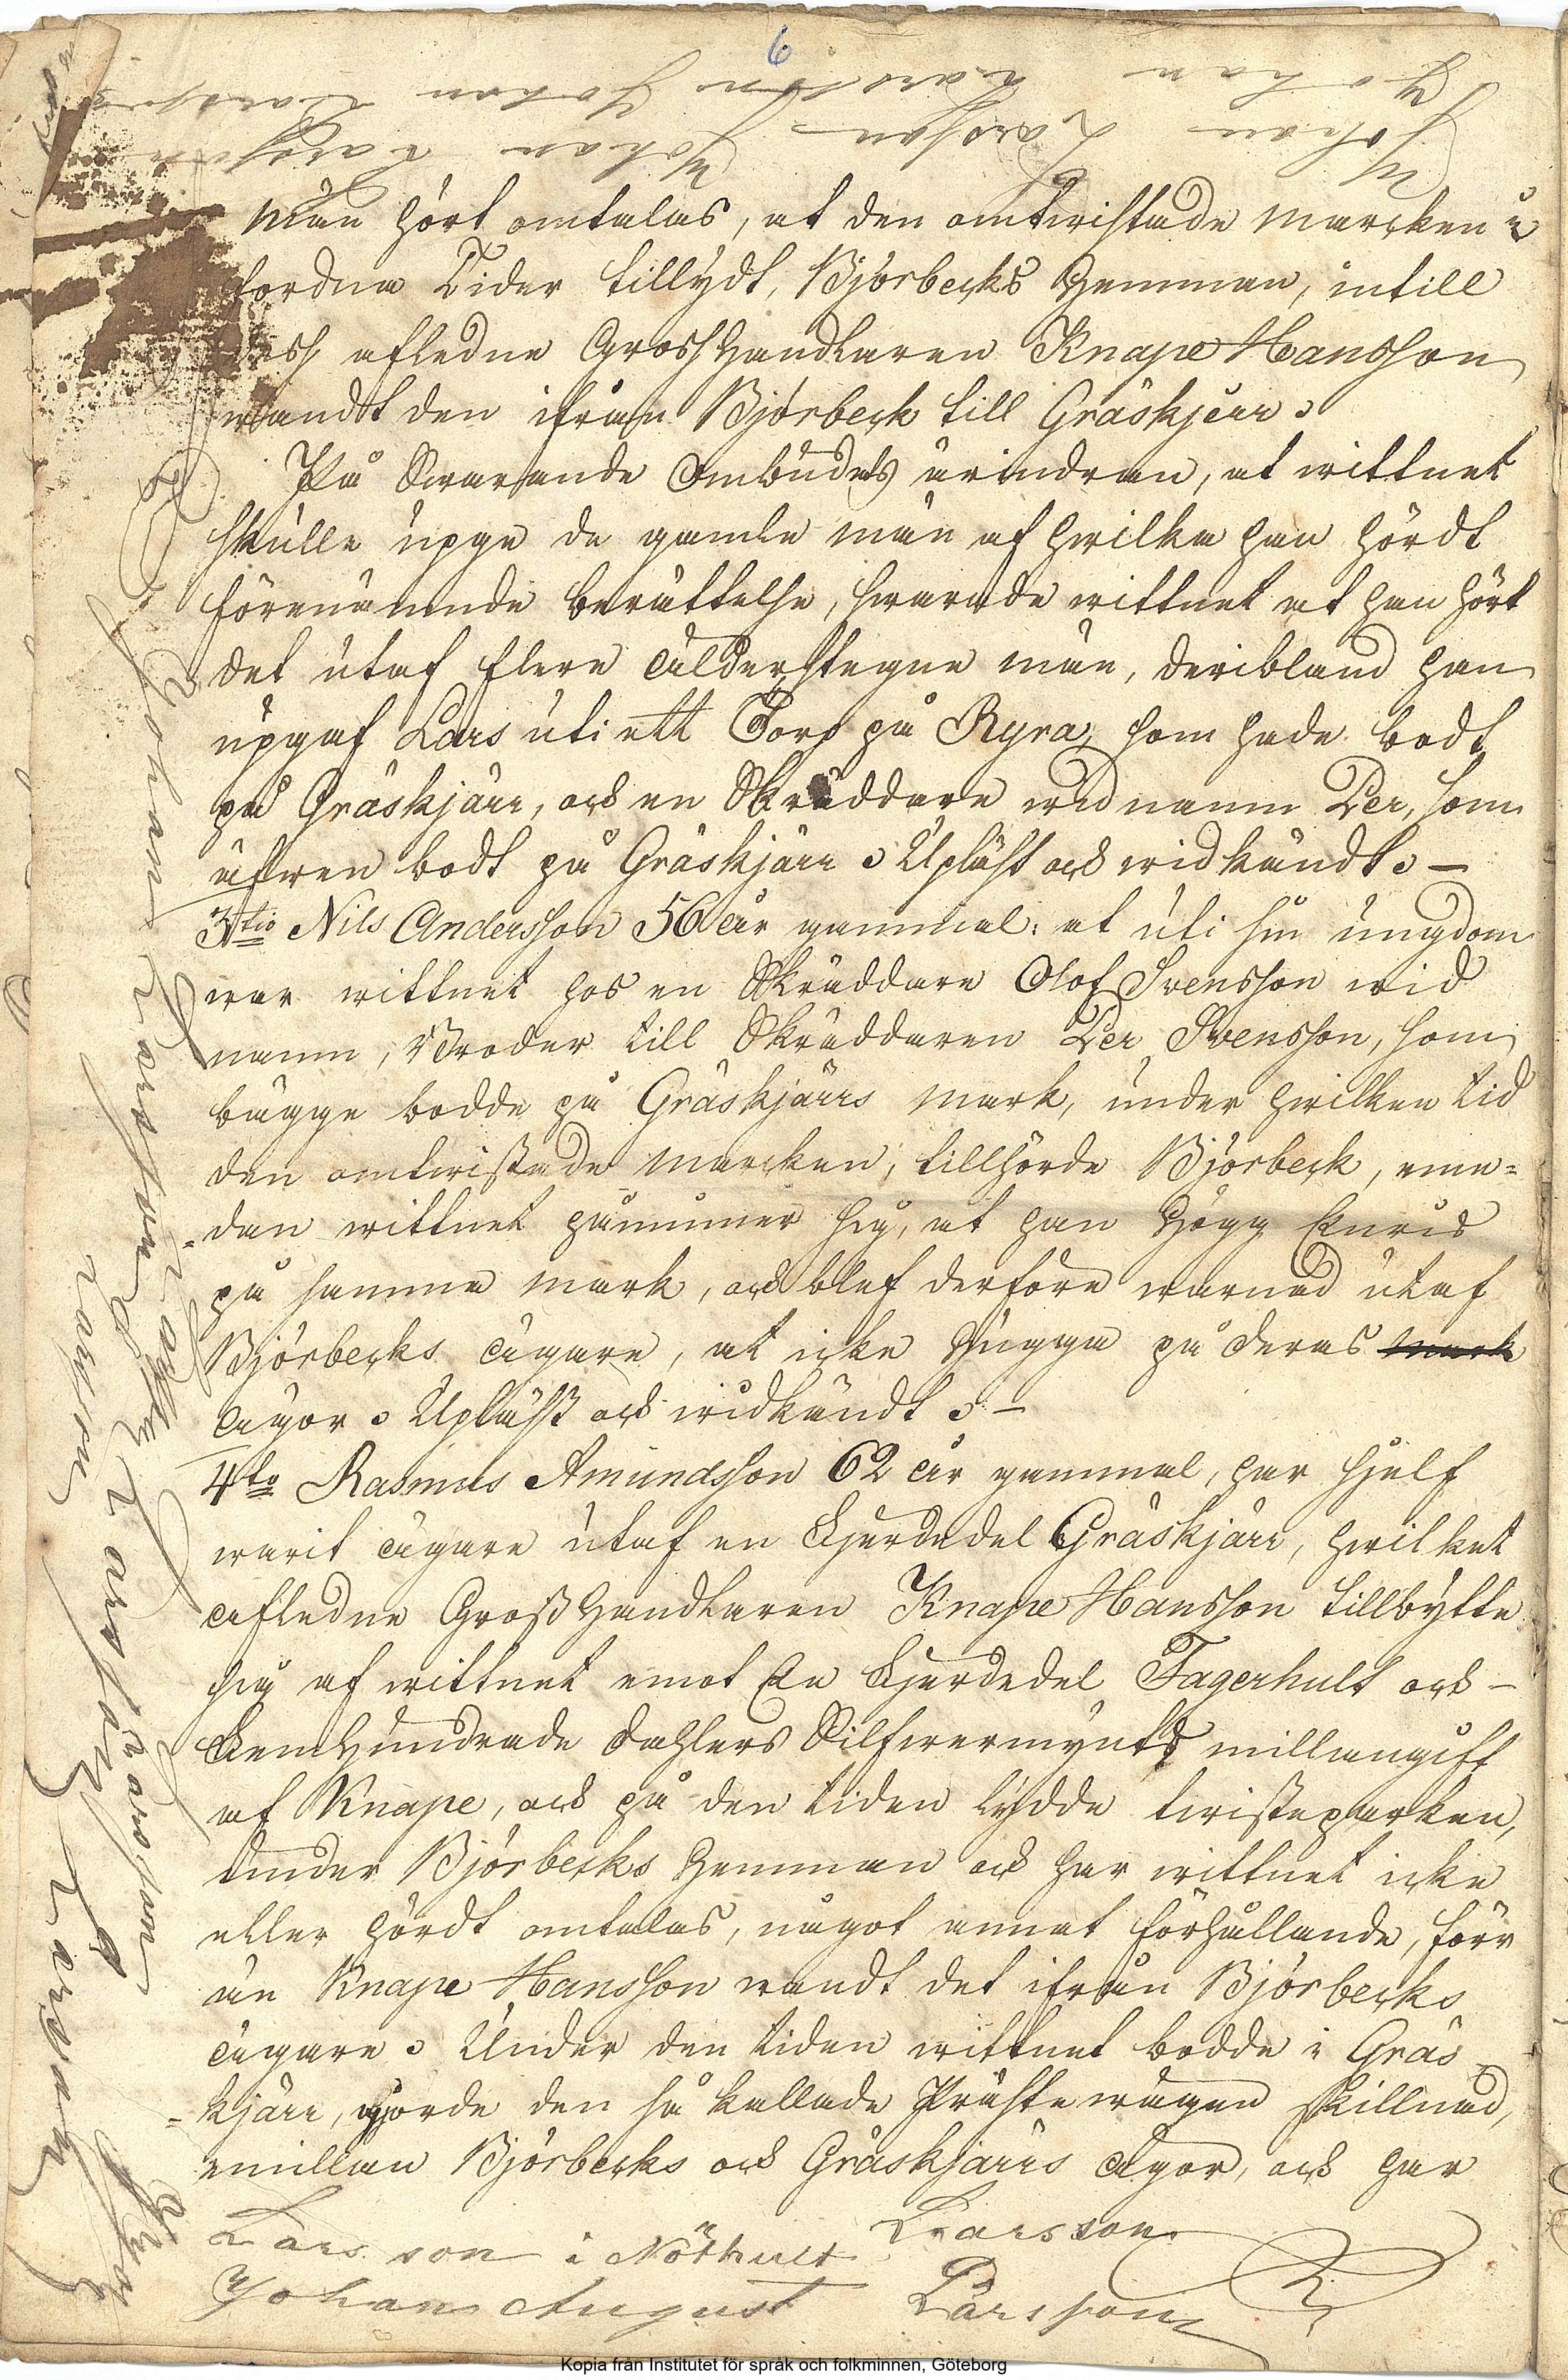 6
Johan Larsson Johan Larsson
Johan Larsson Johan Larsson
män hört omtalas, at den omtwistade marcken i
fordna Tider tillydt, Björbecks Hemman, intill
dess afledne Grosshandlaren Knape Hansson
wandt den ifrån Björbeck till Gräskjärr.
På Swarande Ombudets ärindran, at wittnet
skulle upge de gamle män af hwilka han hördt
förenämnde berättelse, swarade wittnet at han hört
det utaf flere ålderstegne män, deribland han
upgaf Lars uti ett Torp på Ryra, som hade bodt
på Gräskjärr, och en Skräddare wid namn Per, som
äfwen bodt på Gräskjärr. Upläst och widkändt. —
3tio Nils Andersson 56 år gammal: at uti sin ungdom
war wittnet hos en Skräddare Olof Svensson wid
namn, Broder till Skräddaren Per Svensson, som
bägge bodde på Gräskjärrs mark, under hwilken tid
den omtwistade marcken, tillhörde Björbeck, eme=
=dan wittnet påminner sig, at han Högg Enris
på samma mark, och blef derföre warnad utaf
Björbecks ägare, at icke Hugga på deras mark
ägor. Upläst och widkändt. —
4to Rasmus Amundsson 62 år gammal, har sjelf
warit ägare utaf en Fjerdedel Gräskjärr, hwilket
afledne Grosshandlaren Knape Hansson tillbytte
sig af wittnet emot En Fjerdedel Fagerhult och —
Fem Hundrade Dahlers Silfwermynts millangift
af Knape, och på den tiden lydde twisteparken,
under Björbecks Hemman och har wittnet icke
eller hördt omtalas, något annat förhållande, förr
än Knape Hansson wandt det ifrån Björbecks
ägare. Under den tiden wittnet bodde i Gräs
=kjärr, gjorde den så kallade Prästewägen skillnad,
emillan Björbecks och Gräskjärrs ägor, och har
Larsson i Nöthult Larsson
Johan August Larsson
Johan Larsson
Larsson
Kopia från Institutet för språk och folkminnen, Göteborg